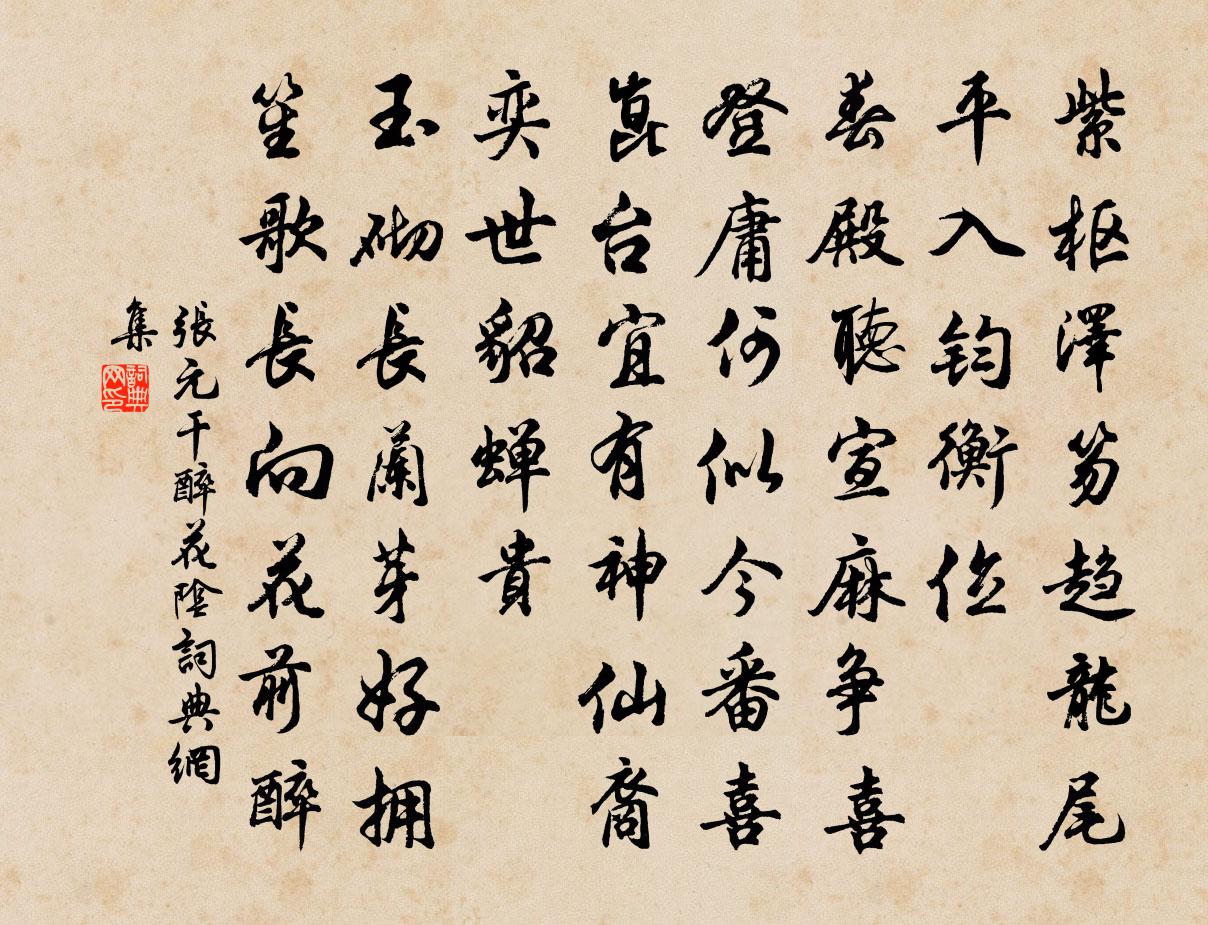 紫枢澤笏趋龍尾
平入鈞衡位
春殿聴宣麻争喜
登庸何似今番喜
崑台宜有神仙裔
奕世貂蝉貴
玉砌長蘭芽好拥
笙歌長向花前醉
張元干醉花陰詞典網
集
詞典
网印